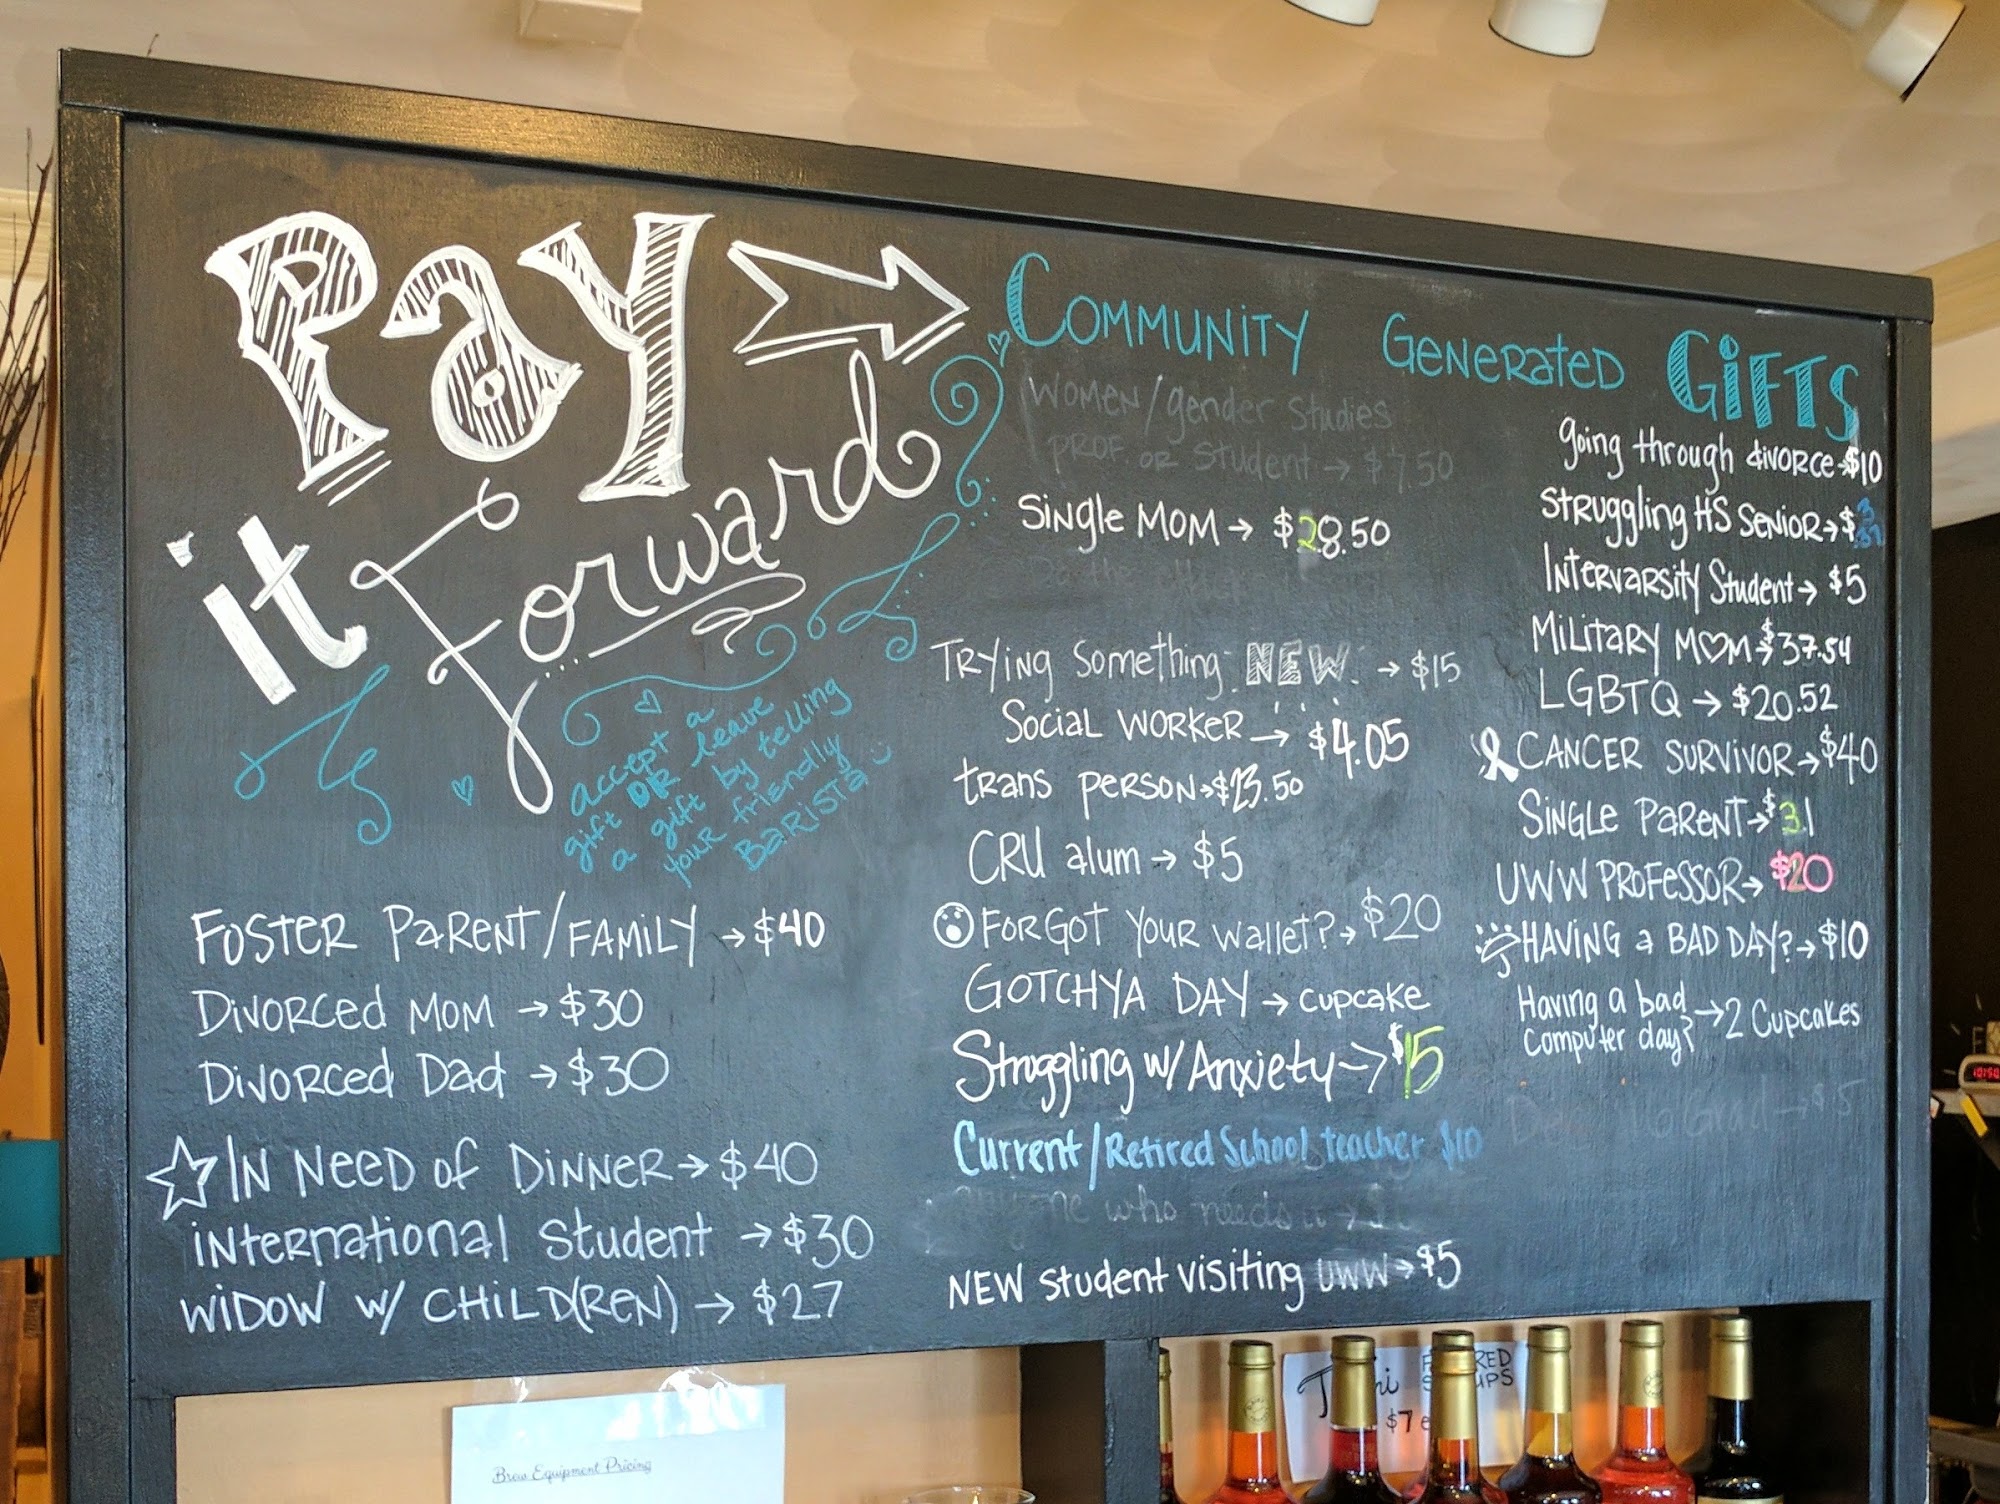 Pay
it Forward
accept a
gift OR leave
a gift by telling
your friendly
Barista
FOSTER PARENT/FAMILY → $40
Divorced MOM → $30
Divorced Dad → $30
IN NEED of DINNER → $40
international Student → $30
WIDOW W/ CHILD(REN) → $27
COMMUNITY GENERATED GIFTS
WOMEN/gender Studies
PROF. OR Student → $7.50
Single MOM → $28.50
TRYING Something NEW → $15
Social WORKER → $4.05
trans PERSON → $23.50
CRU alum → $5
FORGOT YOUR Wallet? → $20
GOTCHYA DAY → CUPCAKE
Struggling w/ Anxiety → $15
Current/Retired School teacher $10
anyone who needs it →
NEW Student visiting UWW → $5
going through divorce → $10
Struggling HS SENIOR → $
Intervarsity Student → $5
Military MOM → $37.54
LGBTQ → $20.52
CANCER SURVIVOR → $40
Single Parent → $31
UWW PROFESSOR → $20
HAVING a BAD DAY? → $10
Having a bad
computer day? → 2 Cupcakes
Grad → $5
Brew Equipment Pricing
$7
10:50